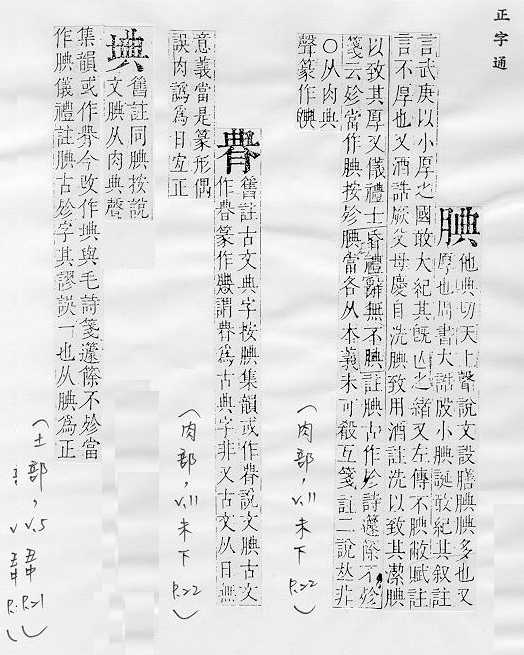 正字通
腆 他典切天上聲說文設膳腆腆多也又
厚也周書大誥殷小腆誕敢紀其叙註
言武庚以小厚之國敢大紀其旣亾之緒又左傳不腆敝賦註
言不厚也又酒誥厥父母慶自洗腆致用酒註洗以致其潔腆
以致其厚又儀禮士昏禮辭無不腆註腆古作殄詩籧篨不殄
箋云殄當作腆按殄腆當各从本義未可殽互箋註二說𠀤非
○从肉典
聲篆作
(肉部, v.11 未下 P.22)
舊註古文典字按腆集韻或作說文腆古文
作篆作謂為古典字非又古文从日無
意義當是篆形偶
誤肉譌為日宐正
(肉部, v.11 未下 P.22)
㙉 舊註同腆按說
文腆从肉典聲
集韻或作今攺作㙉與毛詩箋籧篨不殄當
作腆儀禮註腆古殄字其謬誤一也从腆為正
(土部, v.5 P.21)